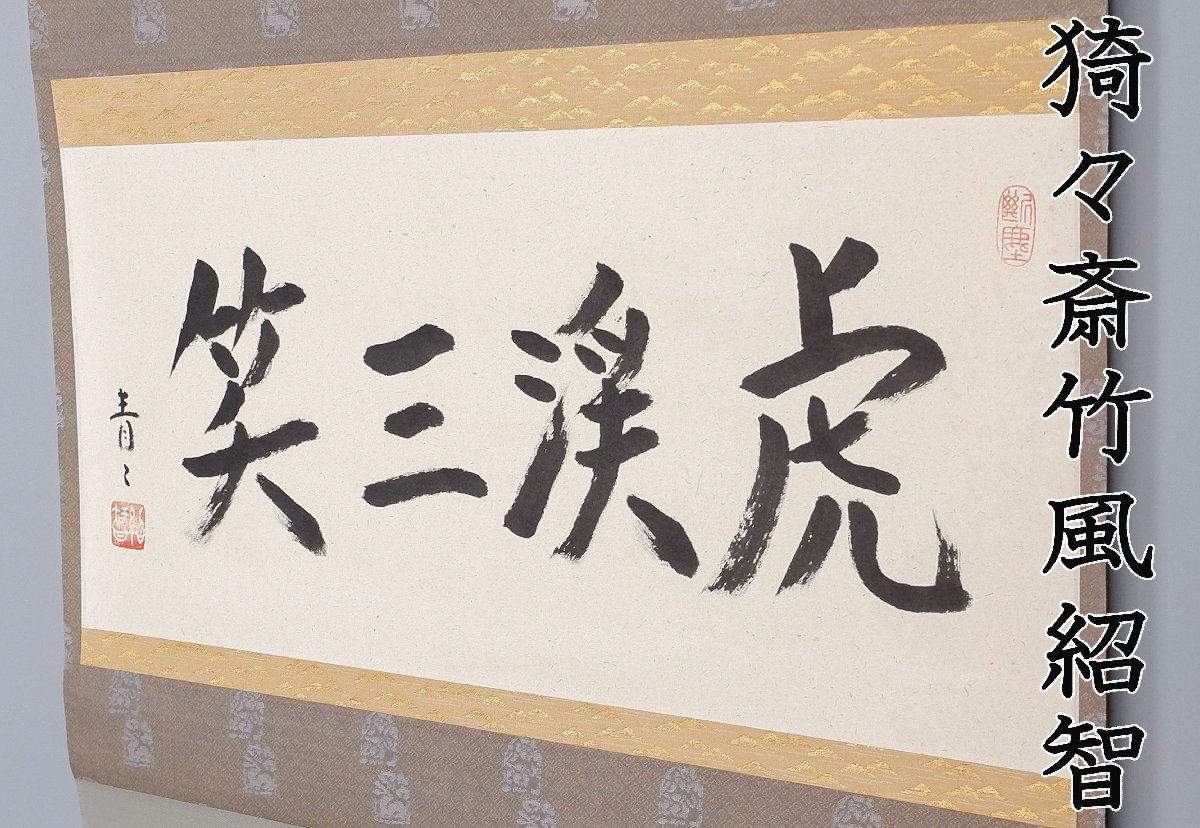 猗々斎竹風紹智
虎溪三笑
青々
紹智